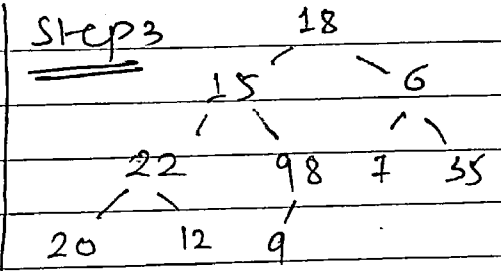 Step3
18
15 6
22 98 7 35
20 12 9